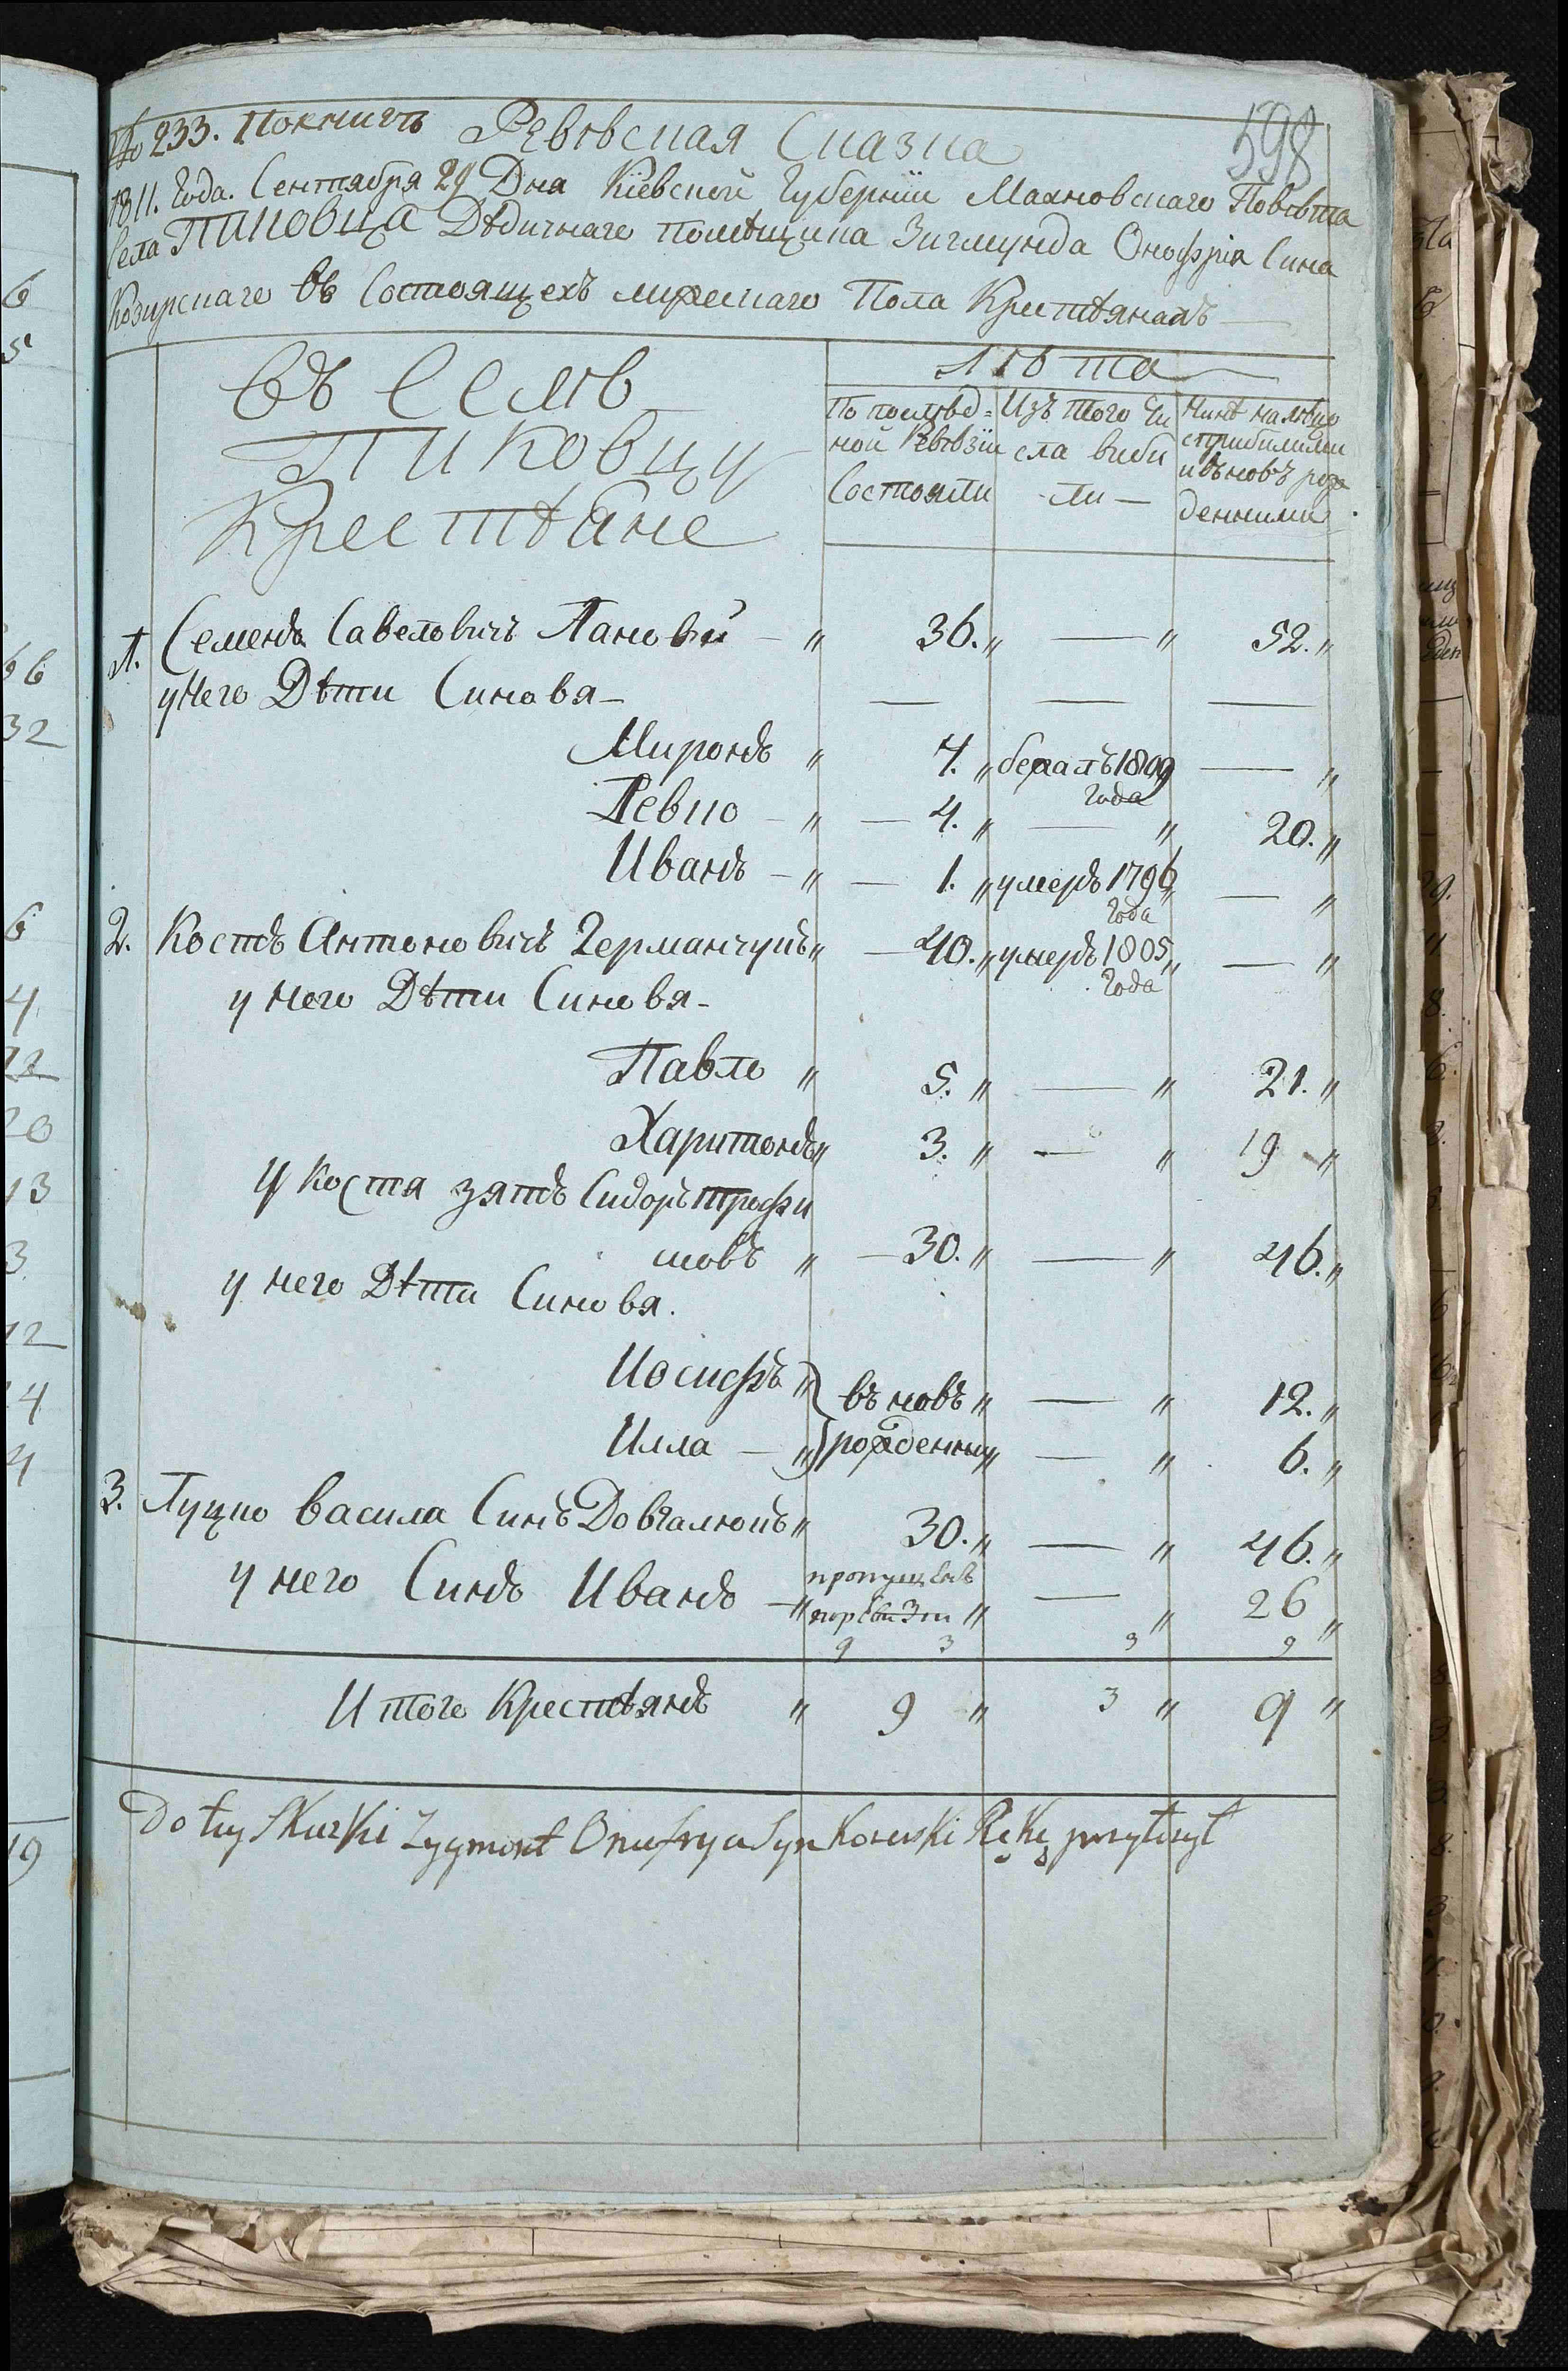 598
№ 233. Покмитъ Ревѣсная Сказка
1811. Года. Сентября 29 Дня Кіевской Губерніи Махновскаго Повѣта
Села Пиковца Дѣдичнаго помѣщика Зигмунда Онофрія Сина
Козирскаго въ Состоящехъ мужескаго Пола Крестѣянахъ
Въ Селѣ
Пиковцу
Крестѣяне
Лѣта
По послѣд=ной Ревѣзіи Состояли
Изъ того Чи сла виби ли
Нинѣ на лѣцо с прибилими и въновъ рожденними
1. Семенъ Савеловичъ Лановий 36. 52.
у него Дѣти Синовя
Миронъ 7. бежалъ 1809 года
Левко 4. 20.
Иванъ 1. умеръ 1796 года
2. Костъ Антоновичъ Германчукъ 40. умеръ 1805 года
у него Дѣти Синовя
Павло 5. 21.
Харитонъ 3. 19
У Костя зятъ Сидоръ Трофи
мовъ 30. 46.
у него Дѣти Синовя.
Иосифъ въновъ 12.
Илла рожденни 6.
3. Луцко Васила Синъ Довгалюкъ 30. 46.
у него Синъ Иванъ пропущенъ по ревизіи 26
9 3 3 9
Итого Крестѣянъ 9 3 9
Do tey Skazki Zygmont Onufrya Syn Kozerski Rękę przyłożył
6
5
66
32
6
4
12
20
13
3
12
14
4
19